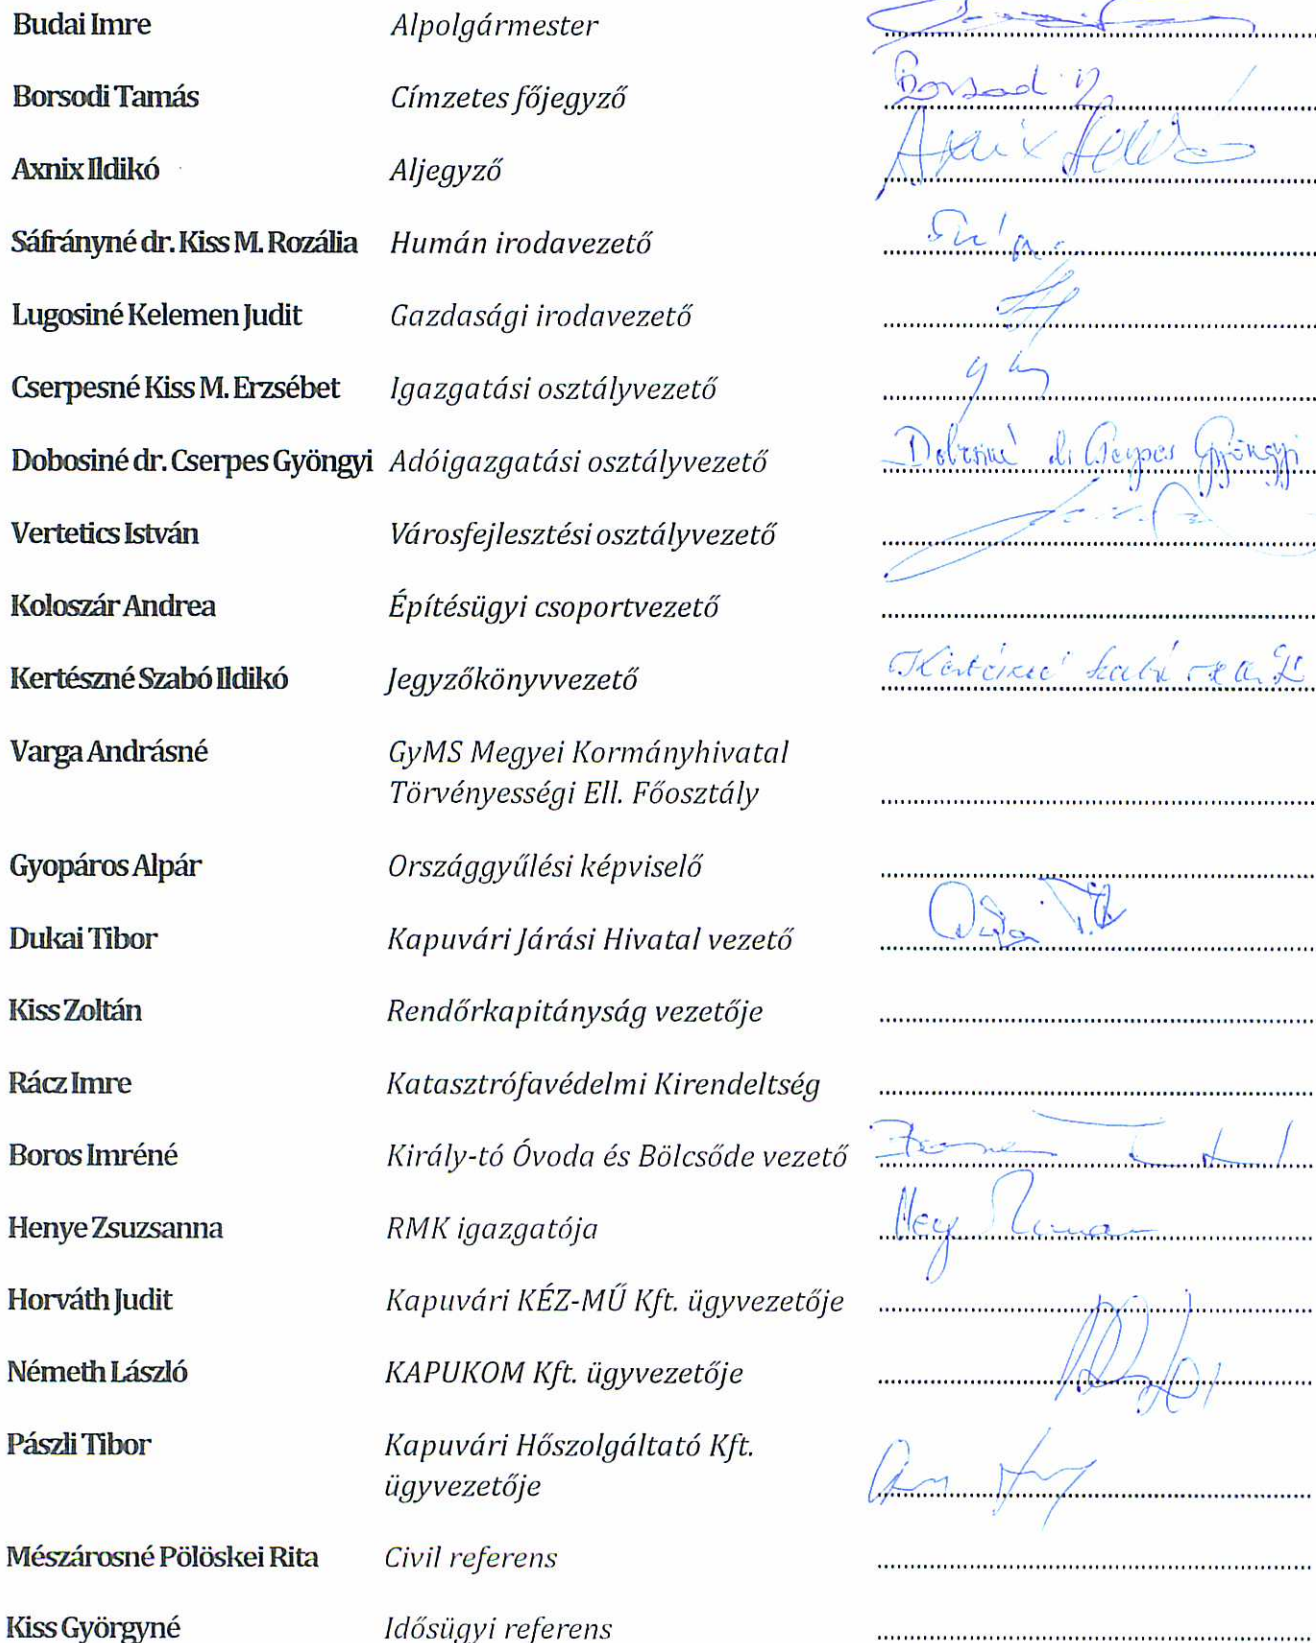 Budai Imre Alpolgármester
Borsodi Tamás Címzetes főjegyző Borsod
Axnix Ildikó Aljegyző Axnix Ildikó
Sáfrányné dr. Kiss M. Rozália Humán irodavezető
Lugosiné Kelemen Judit Gazdasági irodavezető
Cserpesné Kiss M. Erzsébet Igazgatási osztályvezető
Dobosiné dr. Cserpes Gyöngyi Adóigazgatási osztályvezető Dobosiné dr Cserpes Gyöngyi
Vertetics István Városfejlesztési osztályvezető
Koloszár Andrea Építésügyi csoportvezető
Kertészné Szabó Ildikó Jegyzőkönyvvezető Kertészné Szabó
Varga Andrásné GyMS Megyei Kormányhivatal
Törvényességi Ell. Főosztály
Gyopáros Alpár Országgyűlési képviselő
Dukai Tibor Kapuvári Járási Hivatal vezető
Kiss Zoltán Rendőrkapitányság vezetője
Rácz Imre Katasztrófavédelmi Kirendeltség
Boros Imréné Király-tó Óvoda és Bölcsőde vezető
Henye Zsuzsanna RMK igazgatója
Horváth Judit Kapuvári KÉZ-MŰ Kft. ügyvezetője
Németh László KAPUKOM Kft. ügyvezetője
Pászli Tibor Kapuvári Hőszolgáltató Kft.
ügyvezetője
Mészárosné Pölöskei Rita Civil referens
Kiss Györgyné Idősügyi referens